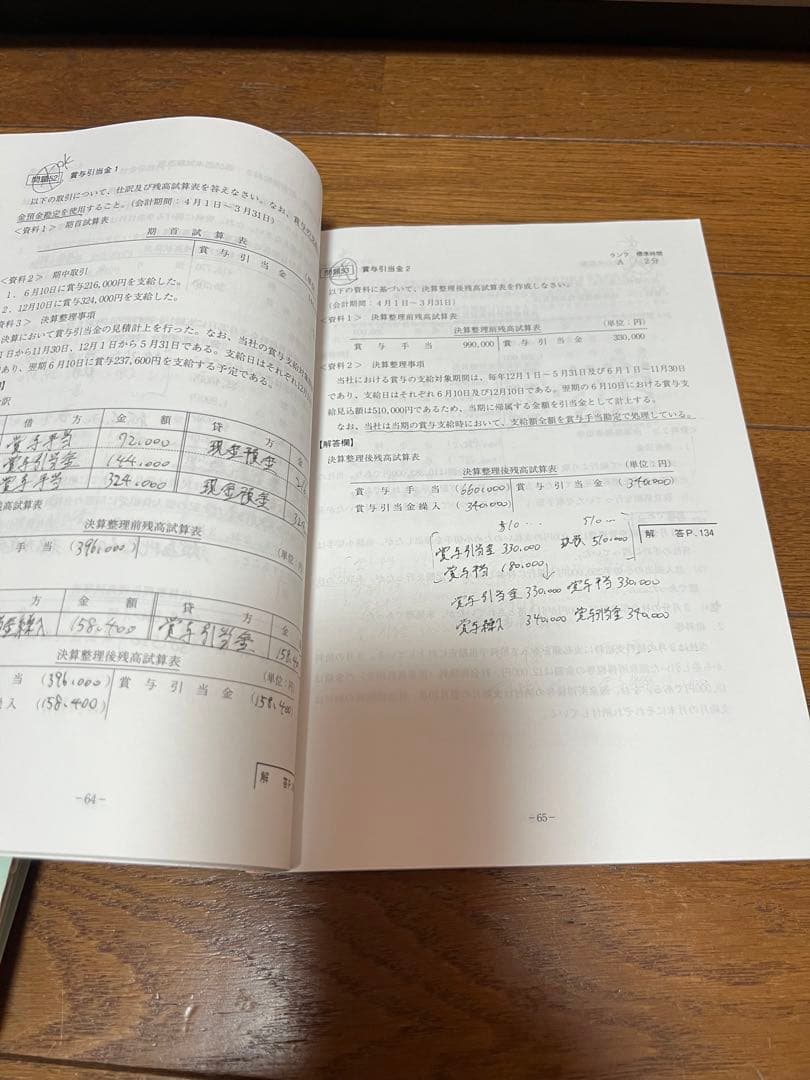 ok
問題52 賞与引当金1
以下の取引について、仕訳及び残高試算表を答えなさい。なお、
金預金勘定を使用すること。(会計期間:4月1日~3月31日)
<資料1> 期首試算表
期首試算表
賞与引当金
<資料2> 期中取引
1.6月10日に賞与216,000円を支給した。
2.12月10日に賞与324,000円を支給した。
資料3> 決算整理事項
決算において賞与引当金の見積計上を行った。なお、当社の賞与支給対象
1日から11月30日、12月1日から5月31日である。支給日はそれぞれ12月
あり、翌期6月10日に賞与237,600円を支給する予定である。
訳
借方 金額 貸方 金
賞与手当 72,000 現金預金
賞与引当金 144,000
賞与手当 324,000 現金預金
高試算表
決算整理前残高試算表 (単位:円)
手当 (396,000)
方 金額 貸方 金
繰入 158,400 賞与引当金
決算整理後残高試算表 (単位:円)
当 (396,000) 賞与引当金 (158,400)
入 (158,400)
解 答P.
-64-
ランク 標準時間
A 2分
問題53 賞与引当金2
以下の資料に基づいて、決算整理後残高試算表を作成しなさい。
(会計期間:4月1日~3月31日)
<資料1> 決算整理前残高試算表
決算整理前残高試算表 (単位:円)
賞与手当 990,000 賞与引当金 330,000
<資料2> 決算整理事項
当社における賞与の支給対象期間は、毎年12月1日~5月31日及び6月1日~11月30日
であり、支給日はそれぞれ6月10日及び12月10日である。翌期の6月10日における賞与支
給見込額は510,000円であるため、当期に帰属する金額を引当金として計上する。
なお、当社は当期の賞与支給時において、支給額全額を賞与手当勘定で処理している。
【解答欄】
決算整理後残高試算表
決算整理後残高試算表 (単位:円)
賞与手当 (660,000) 賞与引当金 (340,000)
賞与引当金繰入 (340,000)
510…
賞与引当金 330,000 510,000
180,000
解 答P.134
賞与引当金 330,000 賞与手当 330,000
賞与繰入 340,000 賞与引当金 340,000
-65-